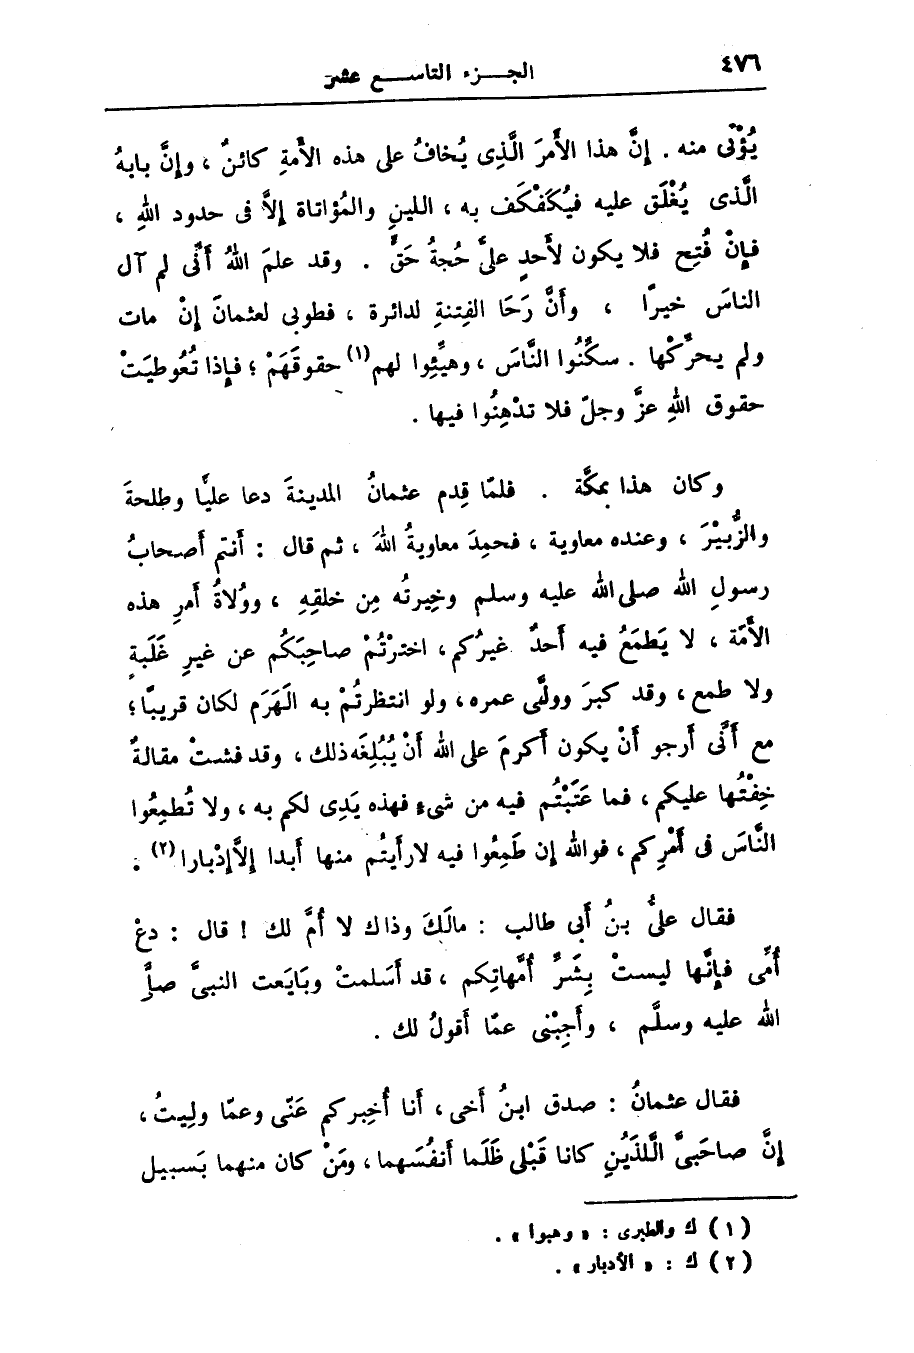 ٤٧٦
الجـزء التاسـع عشر
يُؤْتَى منه . إنَّ هذا الأَمرَ الَّذِى يُخافُ على هذه الأمةِ كائنٌ ، وإنَّ بابهُ
الَّذى يُغْلَق عليه فيُكَفْكَف به ، اللينِ والمُؤاتاة إلاَّ فى حدود اللهِ ،
فإنْ فُتِح فلا يكون لأحدٍ علىَّ حُجةُ حَقٍّ . وقد علمَ اللهُ أَنِّى لم آل
الناسَ خيرًا ، وأَنَّ رَحَا الفِتنةِ لدائرة ، فطوبى لعثمانَ إنْ مات
ولم يحرِّكْها . سكِّنُوا النَّاسَ ، وهيِّئوا لهم(١) حقوقَهَمْ ؛ فإذا تُعُوطيَتْ
حقوق اللهِ عزَّ وجلّ فلا تدْهِنُوا فيها .
وكان هذا بمكَّة . فلمّا قِدم عثمانُ المدينةَ دعا عليًّا وطلحةَ
والزُّبيْرَ ، وعنده معاوية ، فحمِدَ معاويةُ اللهَ ، ثم قال : أَنتم أَصحابُ
رسولِ الله صلى الله عليه وسلم وخِيرتُه مِن خلقِهِ ، ووُلاةُ أَمرِ هذه
الأمّة ، لا يَطمَعُ فيه أَحدٌ غيرُكم ، اخترْتُمْ صاحِبَكُم عن غيرِ غَلَبةٍ
ولا طمع ، وقد كبرَ وولَّى عمره ، ولو انتظرتُمْ به الَهرَم لكان قريبًا ؛
مع أَنِّى أَرجو أَنْ يكون أَكرمَ على الله أَنْ يُبْلِغَه ذلك ، وقد فشتْ مقالةٌ
خِفْتُها عليكم ، فما عَتَبْتُم فيه من شىءٍ فهذه يَدِى لكم به ، ولا تُطمِعُوا
النَّاسَ فى أَمْرِكم ، فوالله إن طَمِعُوا فيه لارأَيتُم منها أَبدا إلاَّ إدْبارا(٢) .
فقال علىُّ بنُ أَبى طالب : مالَكَ وذاك لا أُمَّ لك ! قال : دعْ
أُمِّى فإنَّها ليستْ بِشَرِّ أُمَّهاتِكم ، قد أَسَلمتْ وبَايَعت النبىَّ صلَّى
الله عليه وسلَّم ، وأَجِبْنى عمّا أَقولُ لك .
فقال عثمانُ : صدق ابنُ أَخى ، أَنا أُخبِركم عَنّى وعمّا ولِيتُ ،
إنَّ صاحَبىَّ الَّلذَيْنِ كانا قَبْلى ظَلَما أَنفُسَهما ، ومَنْ كان منهما بَسبيل
(١) ك والطبرى : « وهبوا » .
(٢) ك : « الأدبار » .